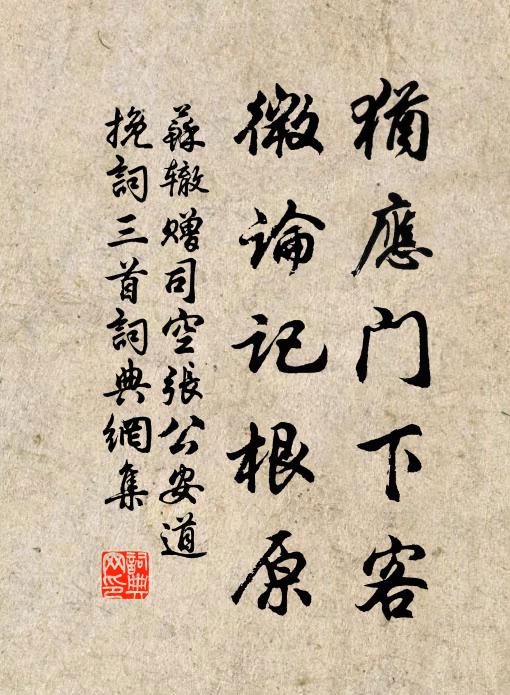 猶應門下客
微論記根原
蘇辙赠司空張公安道
挽詞三首詞典網集
詞典网印